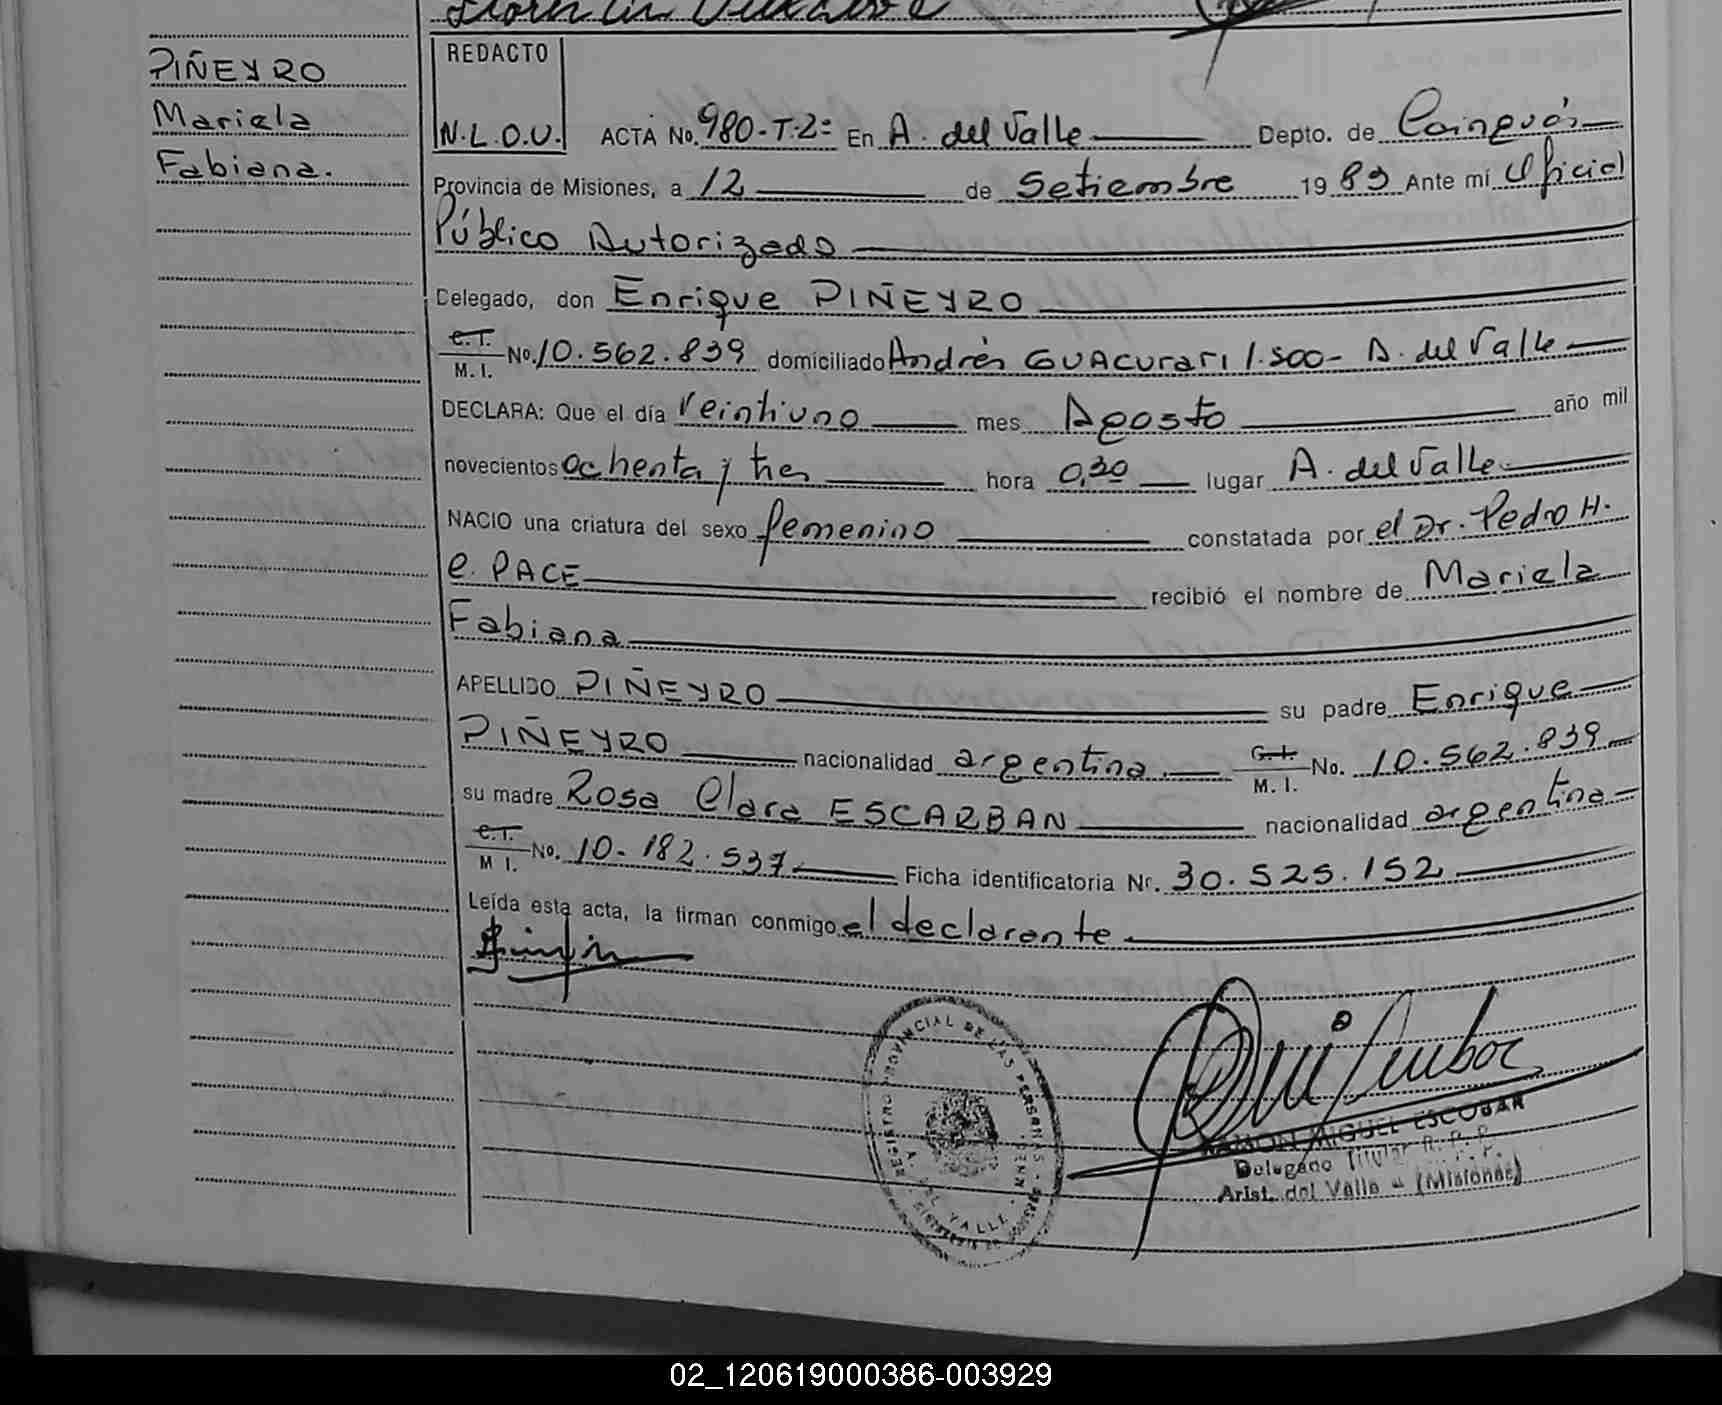 PIÑEYRO
Mariela
Fabiana.
REDACTO
N.L.O.U. ACTA No. 980-T.2º En A. del Valle Depto. de Cainguás
Provincia de Misiones, a 12 de Setiembre 19 83 Ante mí Oficial
Público Autorizado
Delegado, don Enrique PIÑEYRO
C.I. M. I. No. 10.562.839 domiciliado Andrés GUACURARI 1.500- A. del Valle
DECLARA: Que el día veintiuno mes Agosto año mil
novecientos ochenta y tres hora 0,30 lugar A. del Valle
NACIO una criatura del sexo femenino constatada por el Dr. Pedro H.
e. PACE recibió el nombre de Mariela
Fabiana
APELLIDO PIÑEYRO su padre Enrique
PIÑEYRO nacionalidad argentina C.I. M. I. No. 10.562.839
su madre Rosa Clara ESCARBAN nacionalidad argentina
C.I. M I. No. 10.182.537 Ficha identificatoria Nr. 30.525.152
Leída esta acta, la firman conmigo el declarente
REGISTRO PROVINCIAL DE LAS PERSONAS
A. DEL VALLE
RAMON MIGUEL ESCOBAR
Delegado Titular R. P. P.
Arist. del Valle - (Misiones)
02_120619000386-003929